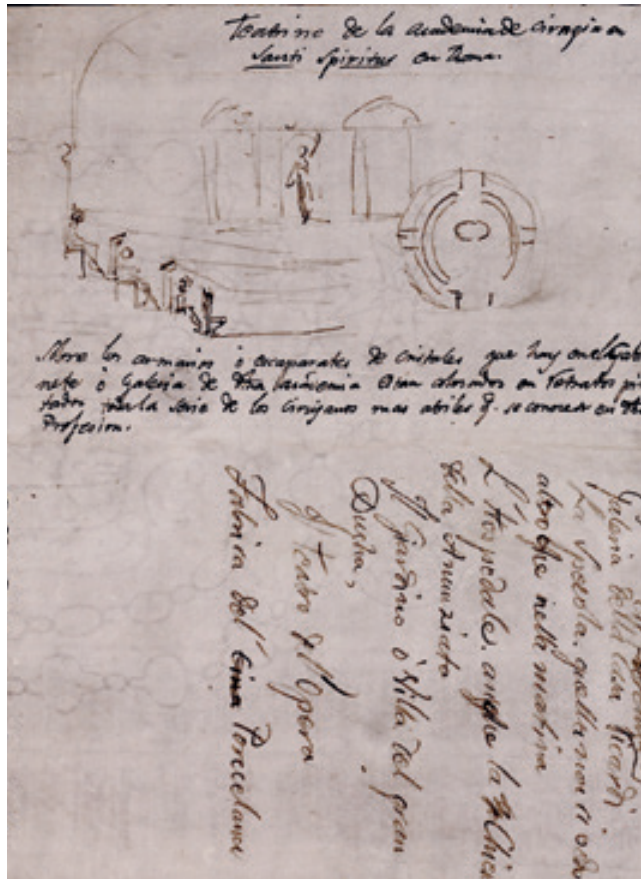 Teatrino de la academia de cirugia en
Santi Spiritus en Roma.
Sobre los armarios ò escaparates de cristales que hay en el Gabi
nete ò Galeria de dha Academia estan colocados en retratos pin
tados por la serie de los cirujanos mas abiles q. se conocen en dha
Profesion.
Galeria della Casa Ricardi
La Specola, quella non ci o
altro che nella matina
L'Hospedale, anche la Chie
della Anunziata
Il Giardino ò Villa del gran
Ducha,
Il teatro dell'Opera
Fabrica del Porcelana